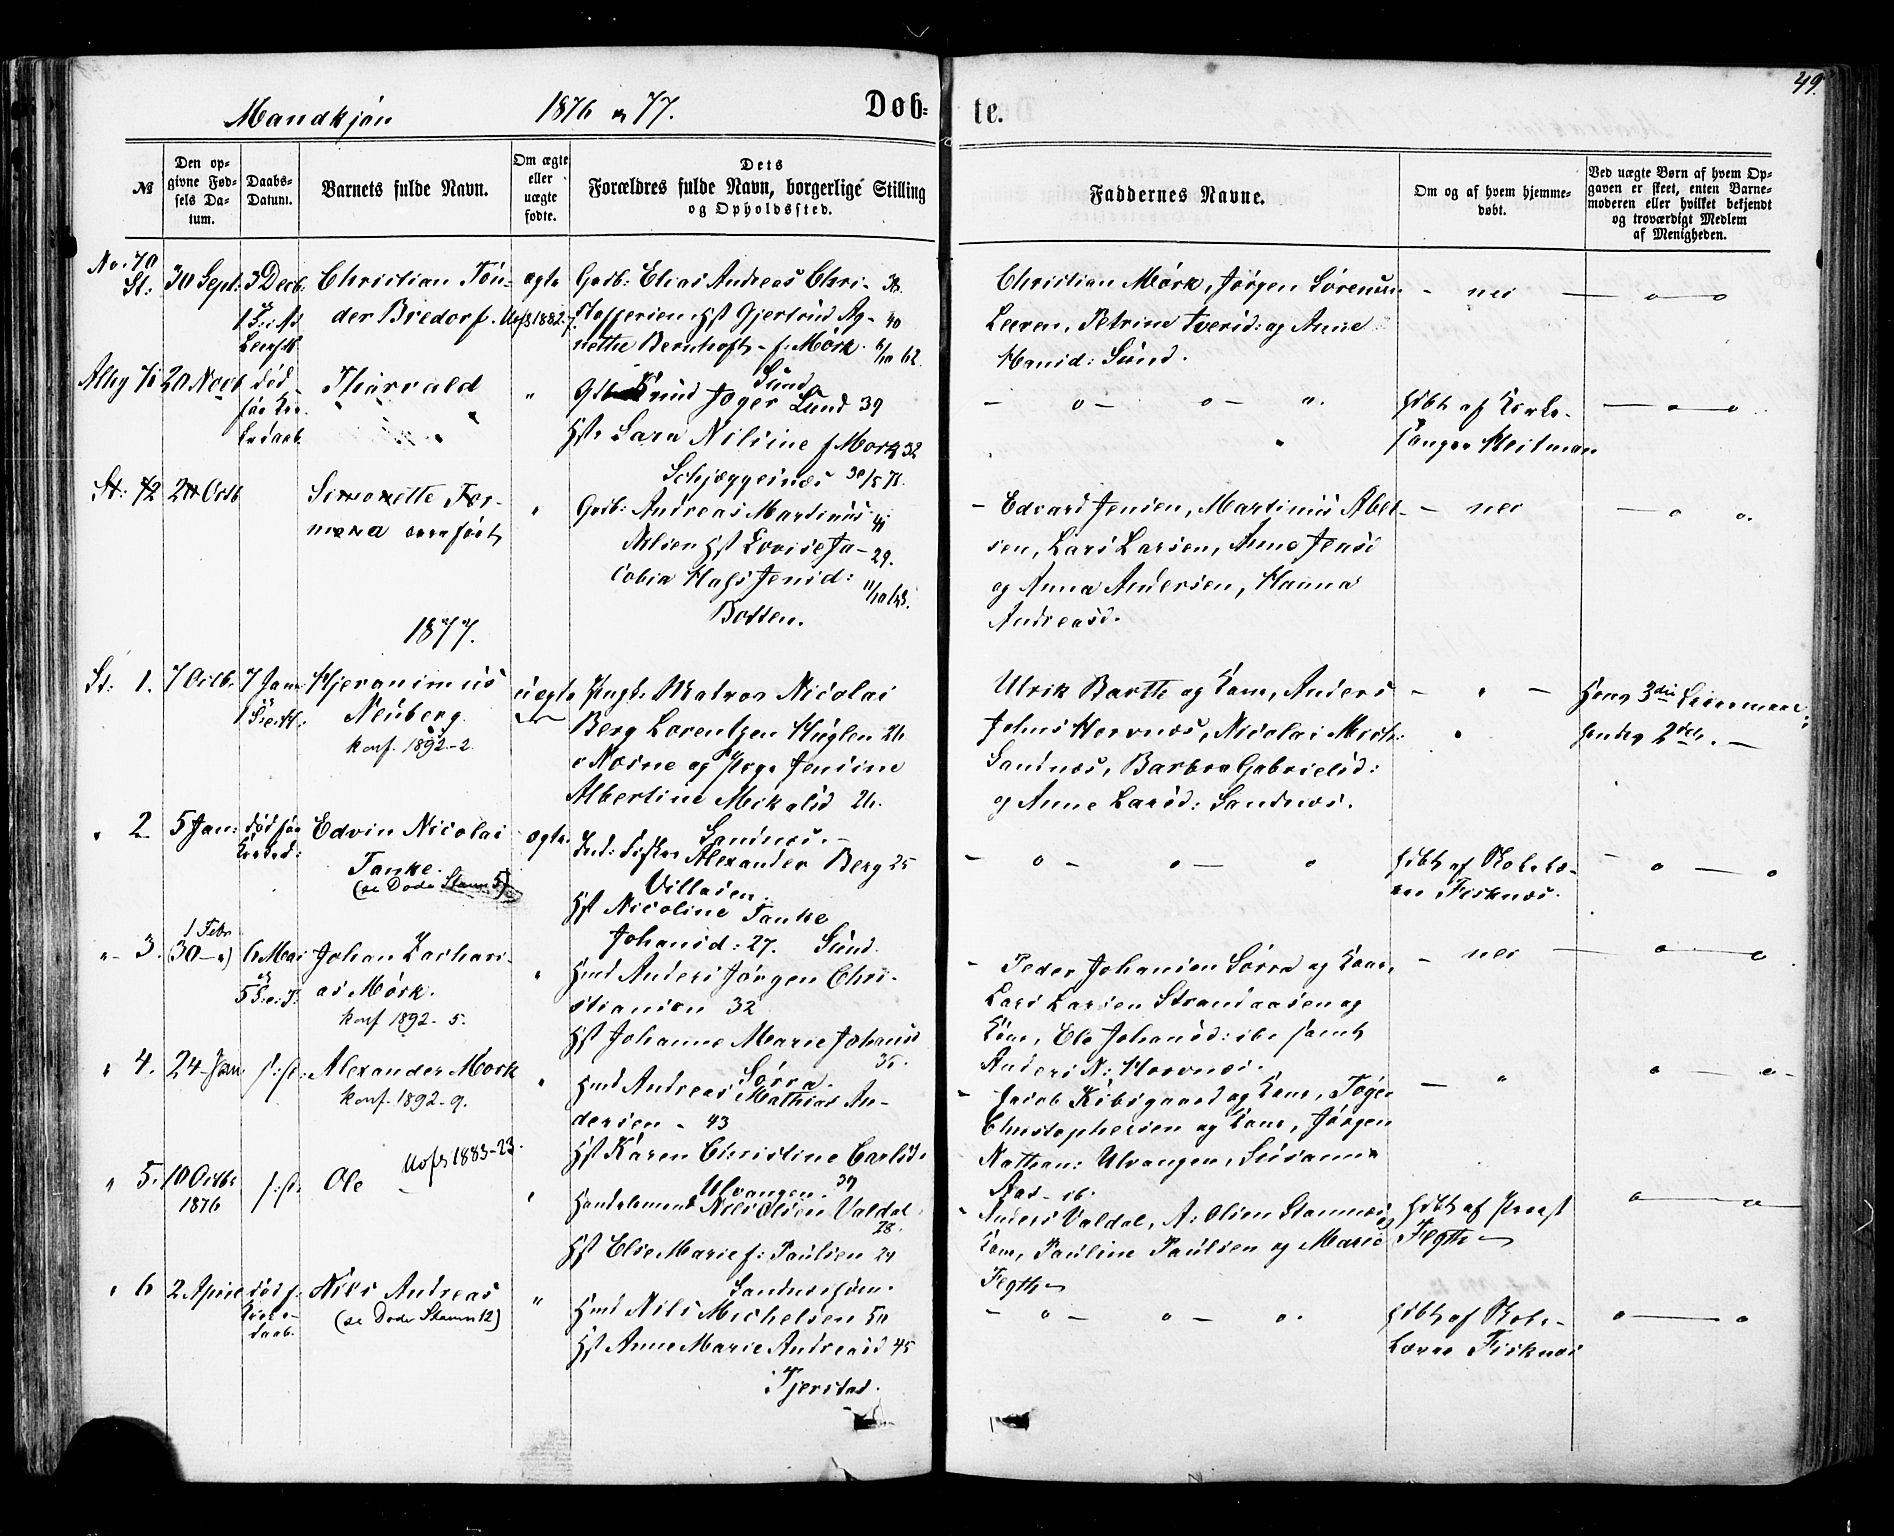 Mandkjøn 1876 og 77. Døb-
te. 49.
№
Den op-
givne Fød-
sels Da-
tum.
Daabs-
Datum.
Barnets fulde Navn.
Om ægte
eller
uægte
fødte.
Dets
Forældres fulde Navn, borgerlige Stilling
og Opholdssted.
Faddernes Navne.
Om og af hvem hjemme-
døbt.
Ved uægte Børn af hvem Op-
gaven er skeet, enten Barne-
moderen eller hvilket bekjendt
og troværdigt Medlem
af Menigheden.
No. 70
St:
30 Sept:
3 Decb:
Christian Tøn-
der Bredorf.
ægte
Gadb: Elias Andreas Chri- 38.
Hst Gjertrud Ag- 40
nethe Bernhoft f: Mørk. 6/10 62.
Christian Mørk, Jørgen Sørensen
Leeren, Petrine Iversd: og Anne
Hansd: Sund.
- nei -
- o - o
Alby 71
20 Novb
død
før Kir-
kedaab.
Thorvald
"
Knud Joger Sund 39
Hst Sara Nilsine f. Mørk 32
Schjæggesnæs 30/5 71.
- o - o - ".
hjdbt af Kirke-
sanger Heitman
- o - o
St: 72
20 Octb
Simonette For-
nera overført
"
Gadb: Andreas Martinus 41
Nilsen Hst Lovise Ja- 29.
cobia Hals Jensd: 11/10 68.
Botten.
- Edvard Jensen, Martinus Abel-
sen, Lars Larsen, Anne Jensd
og Anna Andersen, Hanna
Andreasd.
- nei
- o o.
1877.
St: 1.
7 Octb.
7 Jan:
Hjeronimus
Neuberg
konf 1892-2.
uægte
Ungk: Matros Nicolai
Berg Lorentzen Huglen 26
i Næsne og Pige Jensine
Albertine Mikalsd 26.
Sandnæs. -
Ulrik Barth og Kone, Anders
Johns Horvnæs, Nicolai Mich:
Sandnæs, Barbra Gabrielsd:
og Anne Larsd: Sandnæs.
- " -
hans 3die Leiermaal:
hendes 2det. -
" 2
5 Jan:
død før
Kirked:
Edvin Nicolai
Tanke.
(se Døde Stamn 5)
ægte.
Ind: Fisker Alexander Berg 25
Villasen.
Hst Nicoline Tanke
Johansd: 27. Sund.
- o - o - o
hjdbt af Skolelæ-
rer Fisknæs.
- o - o
"- 3.
1 Febr
(30 - ")
Johan Zachari-
as Mørk.
konf 1892-5.
"
Hmd Anders Jørgen Chri-
stiansen 32
Hst Johanne Marie Johansd
35.
Sørra.
- Peder Johansen Sørra og Kone,
Lars Larsen Strandaasen og
Kone, Ele Johansd: ibi samt
Anders N: Horvnæs.
- nei -
o - o
" 4.
24 Jan.
s: st.
Alexander Mørk
konf 1892-9.
"
Hmd Andreas Mathias An-
dersen - 43
Hst Karen Christine Carlsd.
Ulvangen. 39
- Jacob Kibsgaard og Kone, Toger
Christophersen og Kone, Jørgen
Nathan: Ulvangen, Susanna
Aas- ib.
- "
o - o
" 5.
10 Octbr
1876
s: st.
Ole
Uofs 1883-23.
"
Handelsmand Nils Olsen Valdal
28.
Hst Elise Marie f: Paulsen 24
Sandnæssjøen.
- Anders Valdal, A: Olsen Stamnæs og
Kone, Pauline Paulsen og Marie
Flgth
hjdbt af Præst
Flgth
o - o
" 6
2 April
død f.
Kirke-
daab.
Nils Andreas
(se Døde Stamn 12)
"
Hmd Nils Michelsen 50
Hst Anne Marie Andreasd 45
Tjerstad.
- o - o - o.
hjdbt af Skole-
lærer Fisknæs
o - o